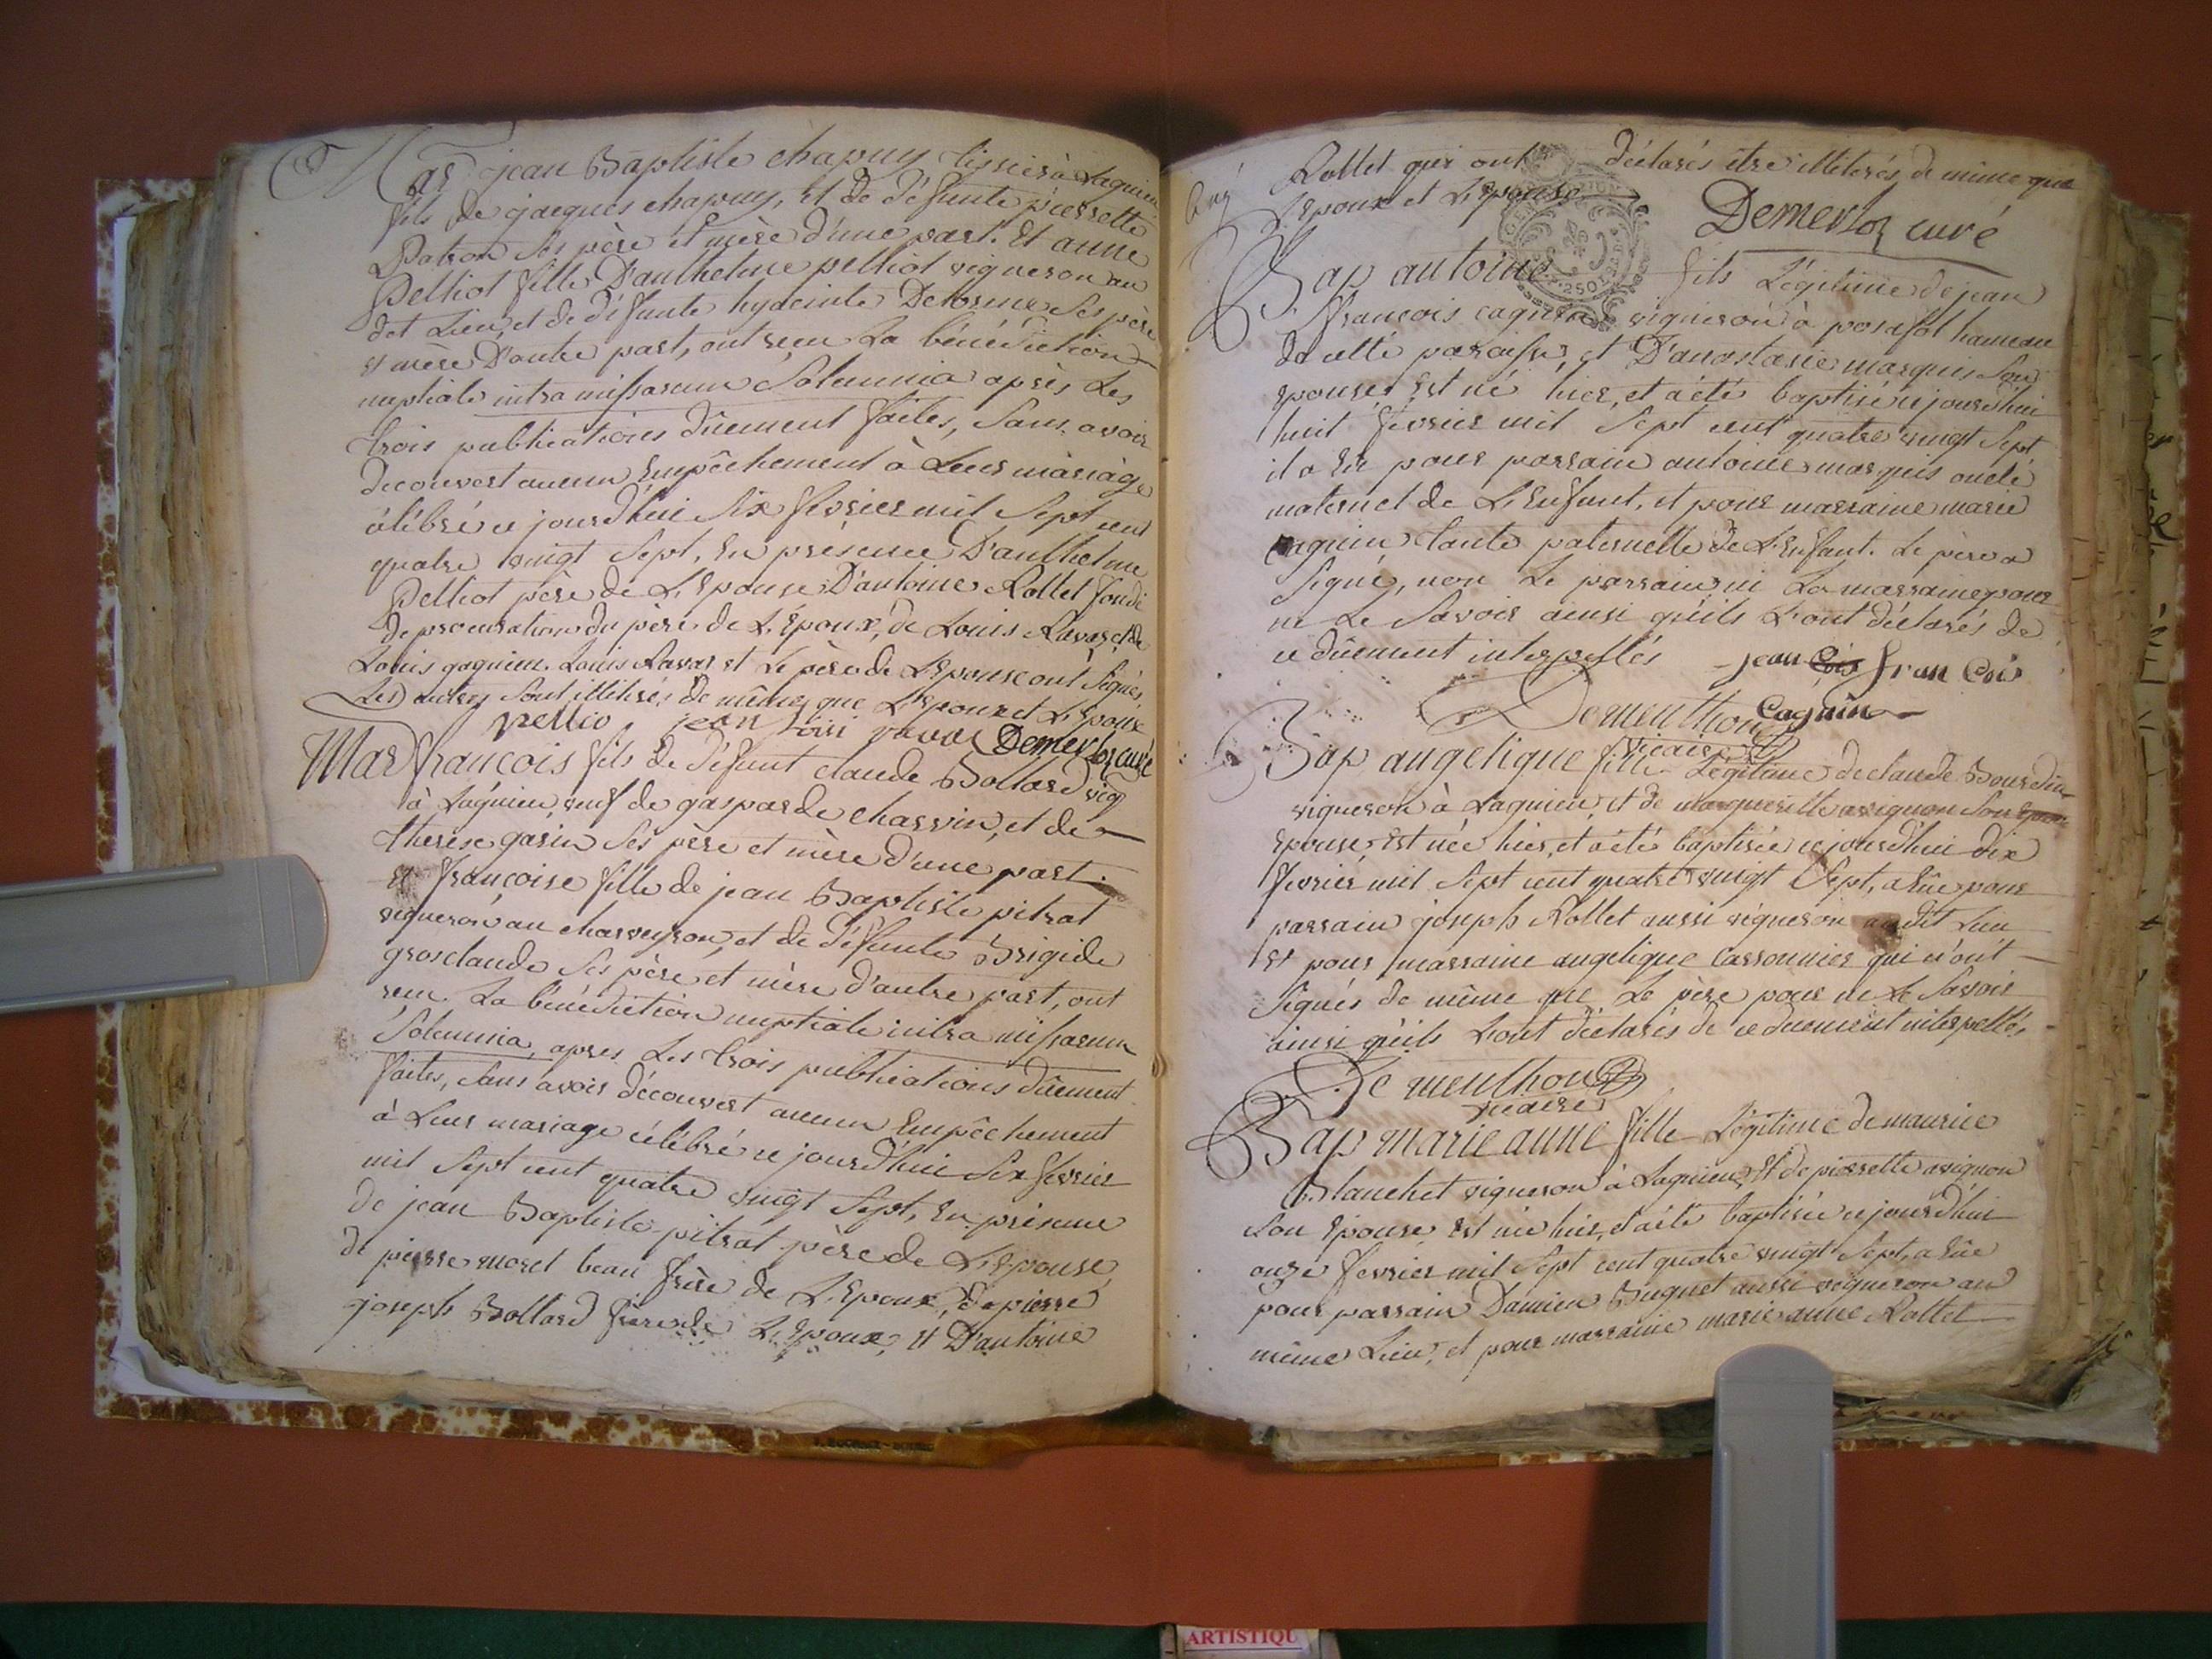 Mar jean Baptiste chapuy tissier à Lagnieu
fils de jacques chapuy, Et de défunte pierrette
Patron ses père et mère d'une part. Et anne
Pelliot fille D'anthelme pelliot vigneron au
dt Lieu, et de défunte hyacinte Delorme ses père
et mère D'autre part, ont reçu La bénédiction
nuptiale intra missarum Solemnia après Les
trois publications dûement faites, Sans avoir
découvert aucun Empêchement à Leur mariage
célébré ce jourd'hui Six fevrier mil Sept cent
quatre vingt Sept, En présence D'anthelme
Pelliot père de L'Epouse D'antoine Rollet fondé
de procuration du père de L'Epoux, de Louis Ravas et de
Louis gagnieu. Louis Ravas et Le père de L'Epouse ont Signés
Les autres sont illiterés de même que L'Epoux et L'Epouse
pellio jean loui ravas Demerloz curé
Mar françois fils de défunt claude Bollard vig
à Lagnieu, veuf de gasparde charvin, et de
therese garin Ses père et mère d'une part.
et françoise fille de jean Baptiste pitrat
vigneron au charveyron, et de défunte Brigide
grosclaude Ses père et mère d'autre part, ont
reçu La bénédiction nuptiale intra missarum
Solemnia, apres Les trois publications dûement
faites, Sans avoir découvert aucun Empêchement
à Leur mariage célébré ce jourd'hui Six fevrier
mil Sept cent quatre vingt Sept, En présence
de jean Baptiste pitrat père de L'Epouse,
de pierre morel beau frère de L'Epoux, de pierre
joseph Bollard frère de L'Epoux, Et D'antoine
Rollet qui ont déclarés être illiterés de même que
L'Epoux et L'Epouse
Demerloz curé
Bap antoine fils Légitime de jean
françois cagnin vigneron à posafol hameau
de cette paroisse, et D'anastasie marquis Son
epouse Est né hier, et a été baptisé ce jourd'hui
huit fevrier mil Sept cent quatre vingt Sept
il a Eu pour parrain antoine marquis oncle
maternel de L'Enfant, et pour marraine marie
cagnin tante paternelle de L'Enfant. Le père a
Signé, non Le parrain, ni La marraine pour
ne Le Savoir ainsi qu'ils L'ont déclarés de
ce dûement interpellés jean fran Cois
Cagnin
Dementhon
vicaire
Bap angelique fille Légitime de claude Bourdin
vigneron à Lagnieu, et de margueritte avignon Son
Epouse Est née hier, et a été baptisée ce jourd'hui dix
fevrier mil Sept cent quatre vingt Sept, a Eue pour
parrain joseph Rollet aussi vigneron audit Lieu
Et pour marraine angelique Carronnier qui n'ont
Signés de même que Le père pour ne Le Savoir
ainsi qu'ils L'ont déclarés de ce duement interpellés
Dementhon
vicaire
Bap marie anne fille Légitime de maurice
Blanchet vigneron à Lagnieu, Et de pierrette avignon
Son Epouse Est née hier, et a été baptisée ce jourd'hui
onze fevrier mil Sept cent quatre vingt Sept, a Eue
pour parrain Damien Buguet aussi vigneron au
même Lieu, et pour marraine marie anne Rollet
ARTISTIQU